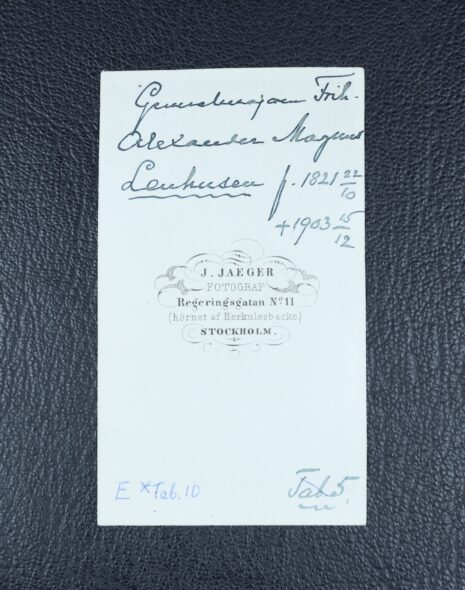 Generalmajoren Frih.
Alexander Magnus
Leuhusen f. 1821 22/10
+ 1903 15/12
J. JAEGER
FOTOGRAF
Regeringsgatan No 11
(hörnet af Herkulesbacke)
STOCKHOLM.
E *Tab. 10
Tab. 5.